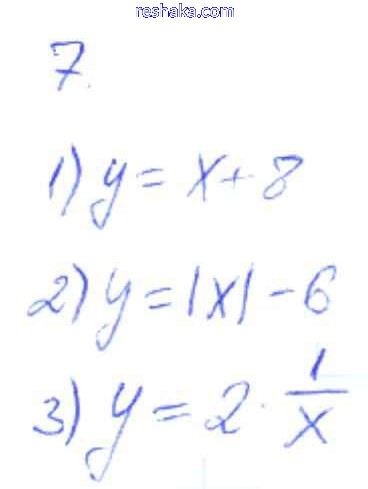 reshaka.com
7.
1) y = x + 8
2) y = |x| - 6
3) y = 2 · 1/x